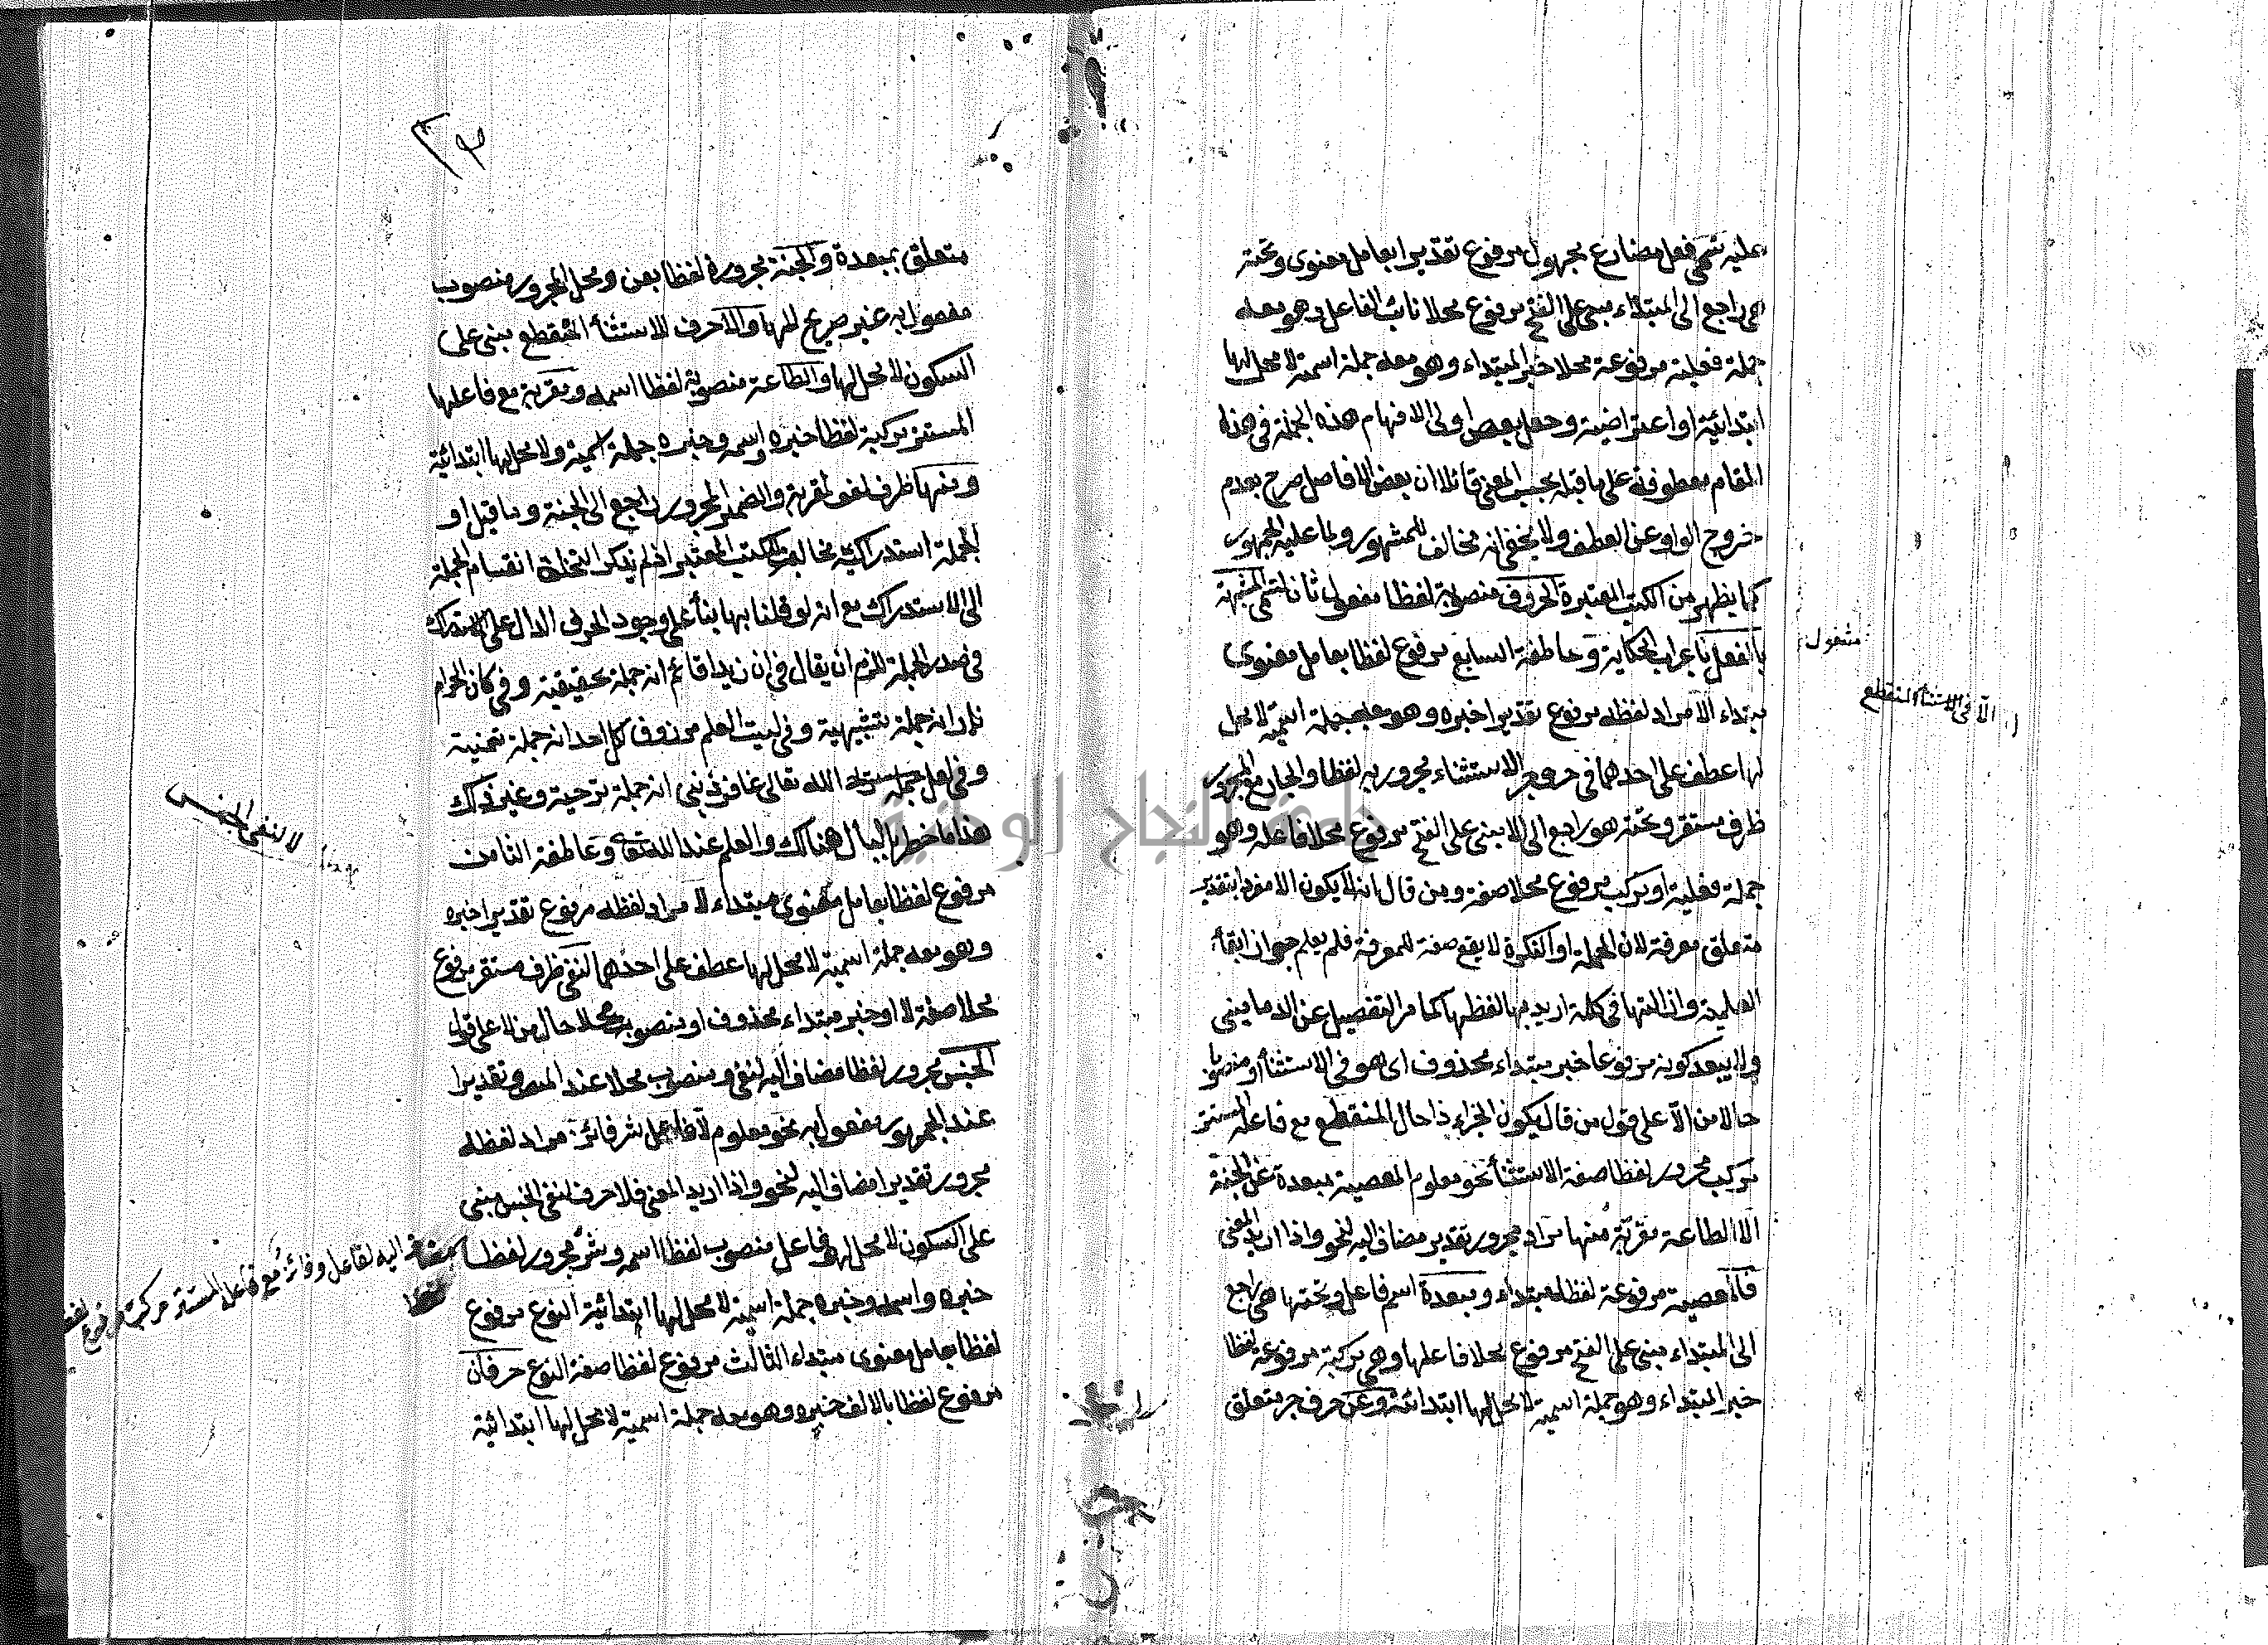 عليه تسمى فعل مضارع مجهول مرفوع تقديرا بعامل معنوى وتحته
هى راجع الى المبتداء مبنى على الفتح مرفوع محلا نائب الفاعل وهو معه
جملة فعلية مرفوعة محلا خبر المبتداء وهو معه جملة اسمية لا محل لها
ابتدائية او اعتراضية وجعل بعض اولى الافهام هذه الجملة فى هذا
المقام معطوفة على ما قبله بحسب المعنى قائلا ان بعض الافاصل صرح بعدم
خروج الواو عن العطف ولا يخفى انه مخالف للمشهور وما عليه الجمهور
كما يظهر من الكتب المعتبرة الحروف منصوبة لفظا مفعول ثان لتسمى المشبهة
بالفعل باعراب الحكاية وعاطفة السابع مرفوع لفظا بعامل معنوى
مبتداء الا مراد لفظه مرفوع تقديرا خبره وهو معه جملة اسمية لا محل
لها عطف على احدهما فى حرف جر الاستثناء مجرور به لفظا والجار مع المجرور
ظرف مستقر وتحته هو راجع الى الا مبنى على الفتح مرفوع محلا فاعله وهو
جملة فعلية او مركب مرفوع محلا صفة ومن قال انه لا يكون الا مفردا بتقدير
متعلق معرفة لان الجملة او النكرة لا يقع صفة للمعرفة فلم يعلم جواز ابقاء
العلمية وازالتها فى كلمة اريد بها لفظها كما مر التفصيل عن الدمامينى
ولا يبعد كونه مرفوعا خبر مبتداء محذوف اى هو فى الاستثناء او منصوبا
حالا من الا على قول من قال يكون الجزاء ذا حال المنقطع مع فاعله المستتر
مركب مجرور لفظا صفة الاستثناء نحو معلوم المعصية مبعدة عن الجنة
الا الطاعة مقربة منها مراد مجرور تقديرا مضاف اليه لنحو واذا اريد المعنى
فالمعصية مرفوعة لفظا مبتداء ومبعدة اسم فاعل وتحتها هى راجع
الى المبتداء مبنى على الفتح مرفوع محلا فاعلها وهى مركبة مرفوعة لفظا
خبر المبتداء وهو جملة اسمية لا محل لها ابتدائية وعن حرف جر متعلق
مفعول
الا فى الاستثناء المنقطع
متعلق بمبعدة والجنة مجرورة لفظا بعن ومحل المجرور منصوب
مفعول به غير صريح لها والا حرف للاستثناء المنقطع مبنى على
السكون لا محل لها والطاعة منصوبة لفظا اسمه ومقربة مع فاعلها
المستتر مركبة لفظا خبره واسمه وخبره جملة اسمية ولا محل لها ابتدائية
ومنها ظرف لغو لمقربة والضمير المجرور راجع الى الجنة وما قيل او
لجملة استدراكية مخالف للكتب المعتبر اذ لم يذكر النحاة انقسام الجملة
الى الاستدراك مع انه لو قلنا بها بناء على وجود الحرف الدال على الاستدراك
فى صدر الجملة للزم ان يقال فى ان زيدا قائم انه جملة تحقيقية وفى كان الحرام
نار انه جملة تشبيهية وفى ليت العلم مرزوق كل احد انه جملة تمنية
وفى لعل الله تعالى غافر ذنبى انه جملة ترجية وغير ذلك
هذا ما خطر بالبال هناك والعلم عند الله وعاطفة الثامن
مرفوع لفظا بعامل معنوى مبتداء لا مراد لفظه مرفوع تقديرا خبره
وهو معه جملة اسمية لا محل لها عطف على احدهما لنفى ظرف مستقر مرفوع
محلا صفة لا او خبر مبتداء محذوف او منصوب محلا حال من لا على قول
الجنس مجرور لفظا مضاف اليه لنفى ومنصوب محلا عند المص وتقديرا
عند الجمهور مفعول به نحو معلوم لا فاعل شر فائز مراد لفظه
مجرور تقديرا مضاف اليه لنحو واذا اريد المعنى فلا حرف لنفى الجنس مبنى
على السكون لا محل لها وفاعل منصوب لفظا اسمه وشر مجرور لفظا
خبره واسمه وخبره جملة اسمية لا محل لها ابتدائية النوع مرفوع
لفظا بعامل معنوى مبتداء الثالث مرفوع لفظا صفة النوع حرفان
مرفوع لفظا بالالف خبره وهو معه جملة اسمية لا محل لها ابتدائية
لا لنفى الجنس
مضاف اليه لفاعل وفائز مع فاعله المستتر مركب مرفوع لفظا
جامعة النجاح الوطنية